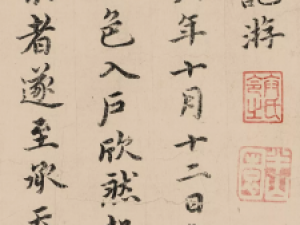 記游
年十月十二日
色入戶欣然
者遂至承天